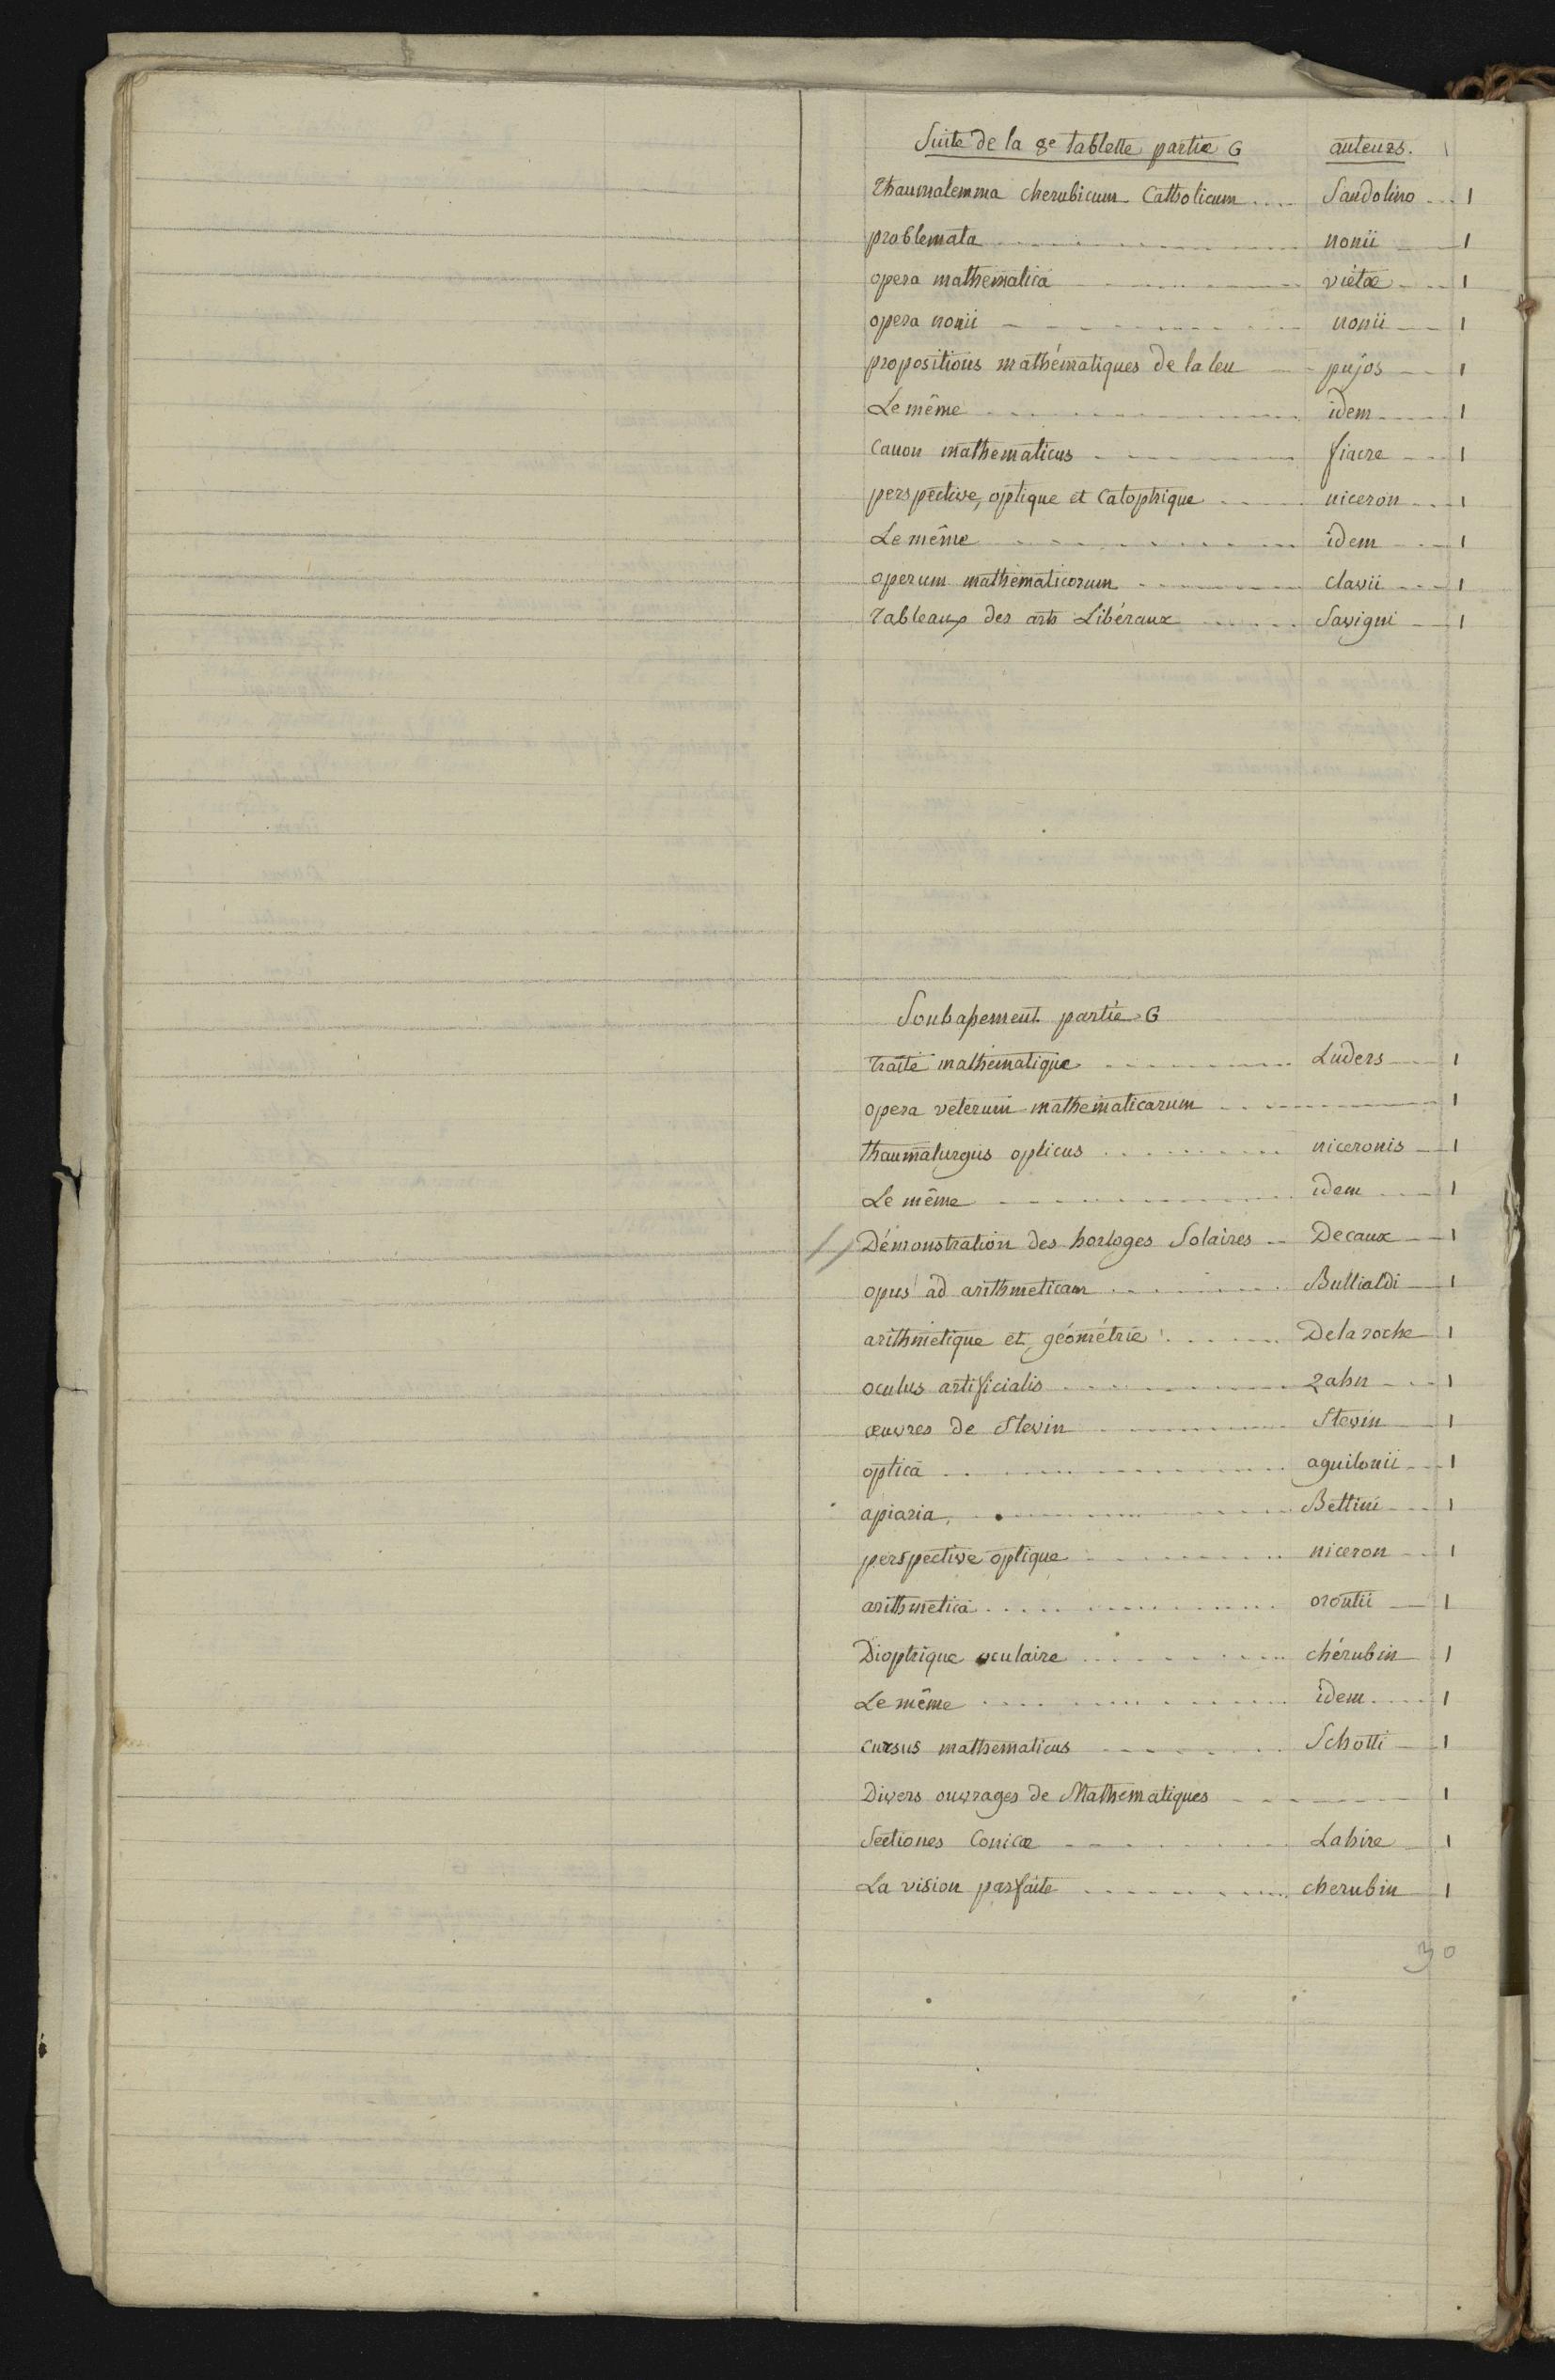 Suite de la 8e tablette partie G auteurs.
Thaumalemma cherubicum Catholicum .... Sandolino ... 1
problemata nonii 1
opera mathematica vietæ 1
opera nonii nonii 1
propositions mathématiques de la leu pujos 1
Le même idem 1
Canon mathematicus fiacre 1
perspective, optique et Catoptrique niceron 1
Le même idem 1
operum mathematicorum clavii 1
Tableaux des arts Libéraux Savigni 1
Soubassement partie G
Traité mathématique Luders 1
opera veterum mathematicarum 1
thaumaturgus opticus niceronis 1
Le même idem 1
// Démonstration des horloges Solaires Decaux 1
opus ad arithmeticam Bullialdi 1
arithmétique et géométrie Delaroche 1
oculus artificialis zahn 1
œuvres de Stevin Stevin 1
optica aguilonii 1
apiaria, Bettini 1
perspective optique niceron 1
arithmetica orontii 1
Dioptrique oculaire chérubin 1
Le même idem 1
cursus mathematicus Schotti 1
Divers ouvrages de Mathématiques 1
Sectiones Conicæ Lahire 1
La vision parfaite cherubin 1
30